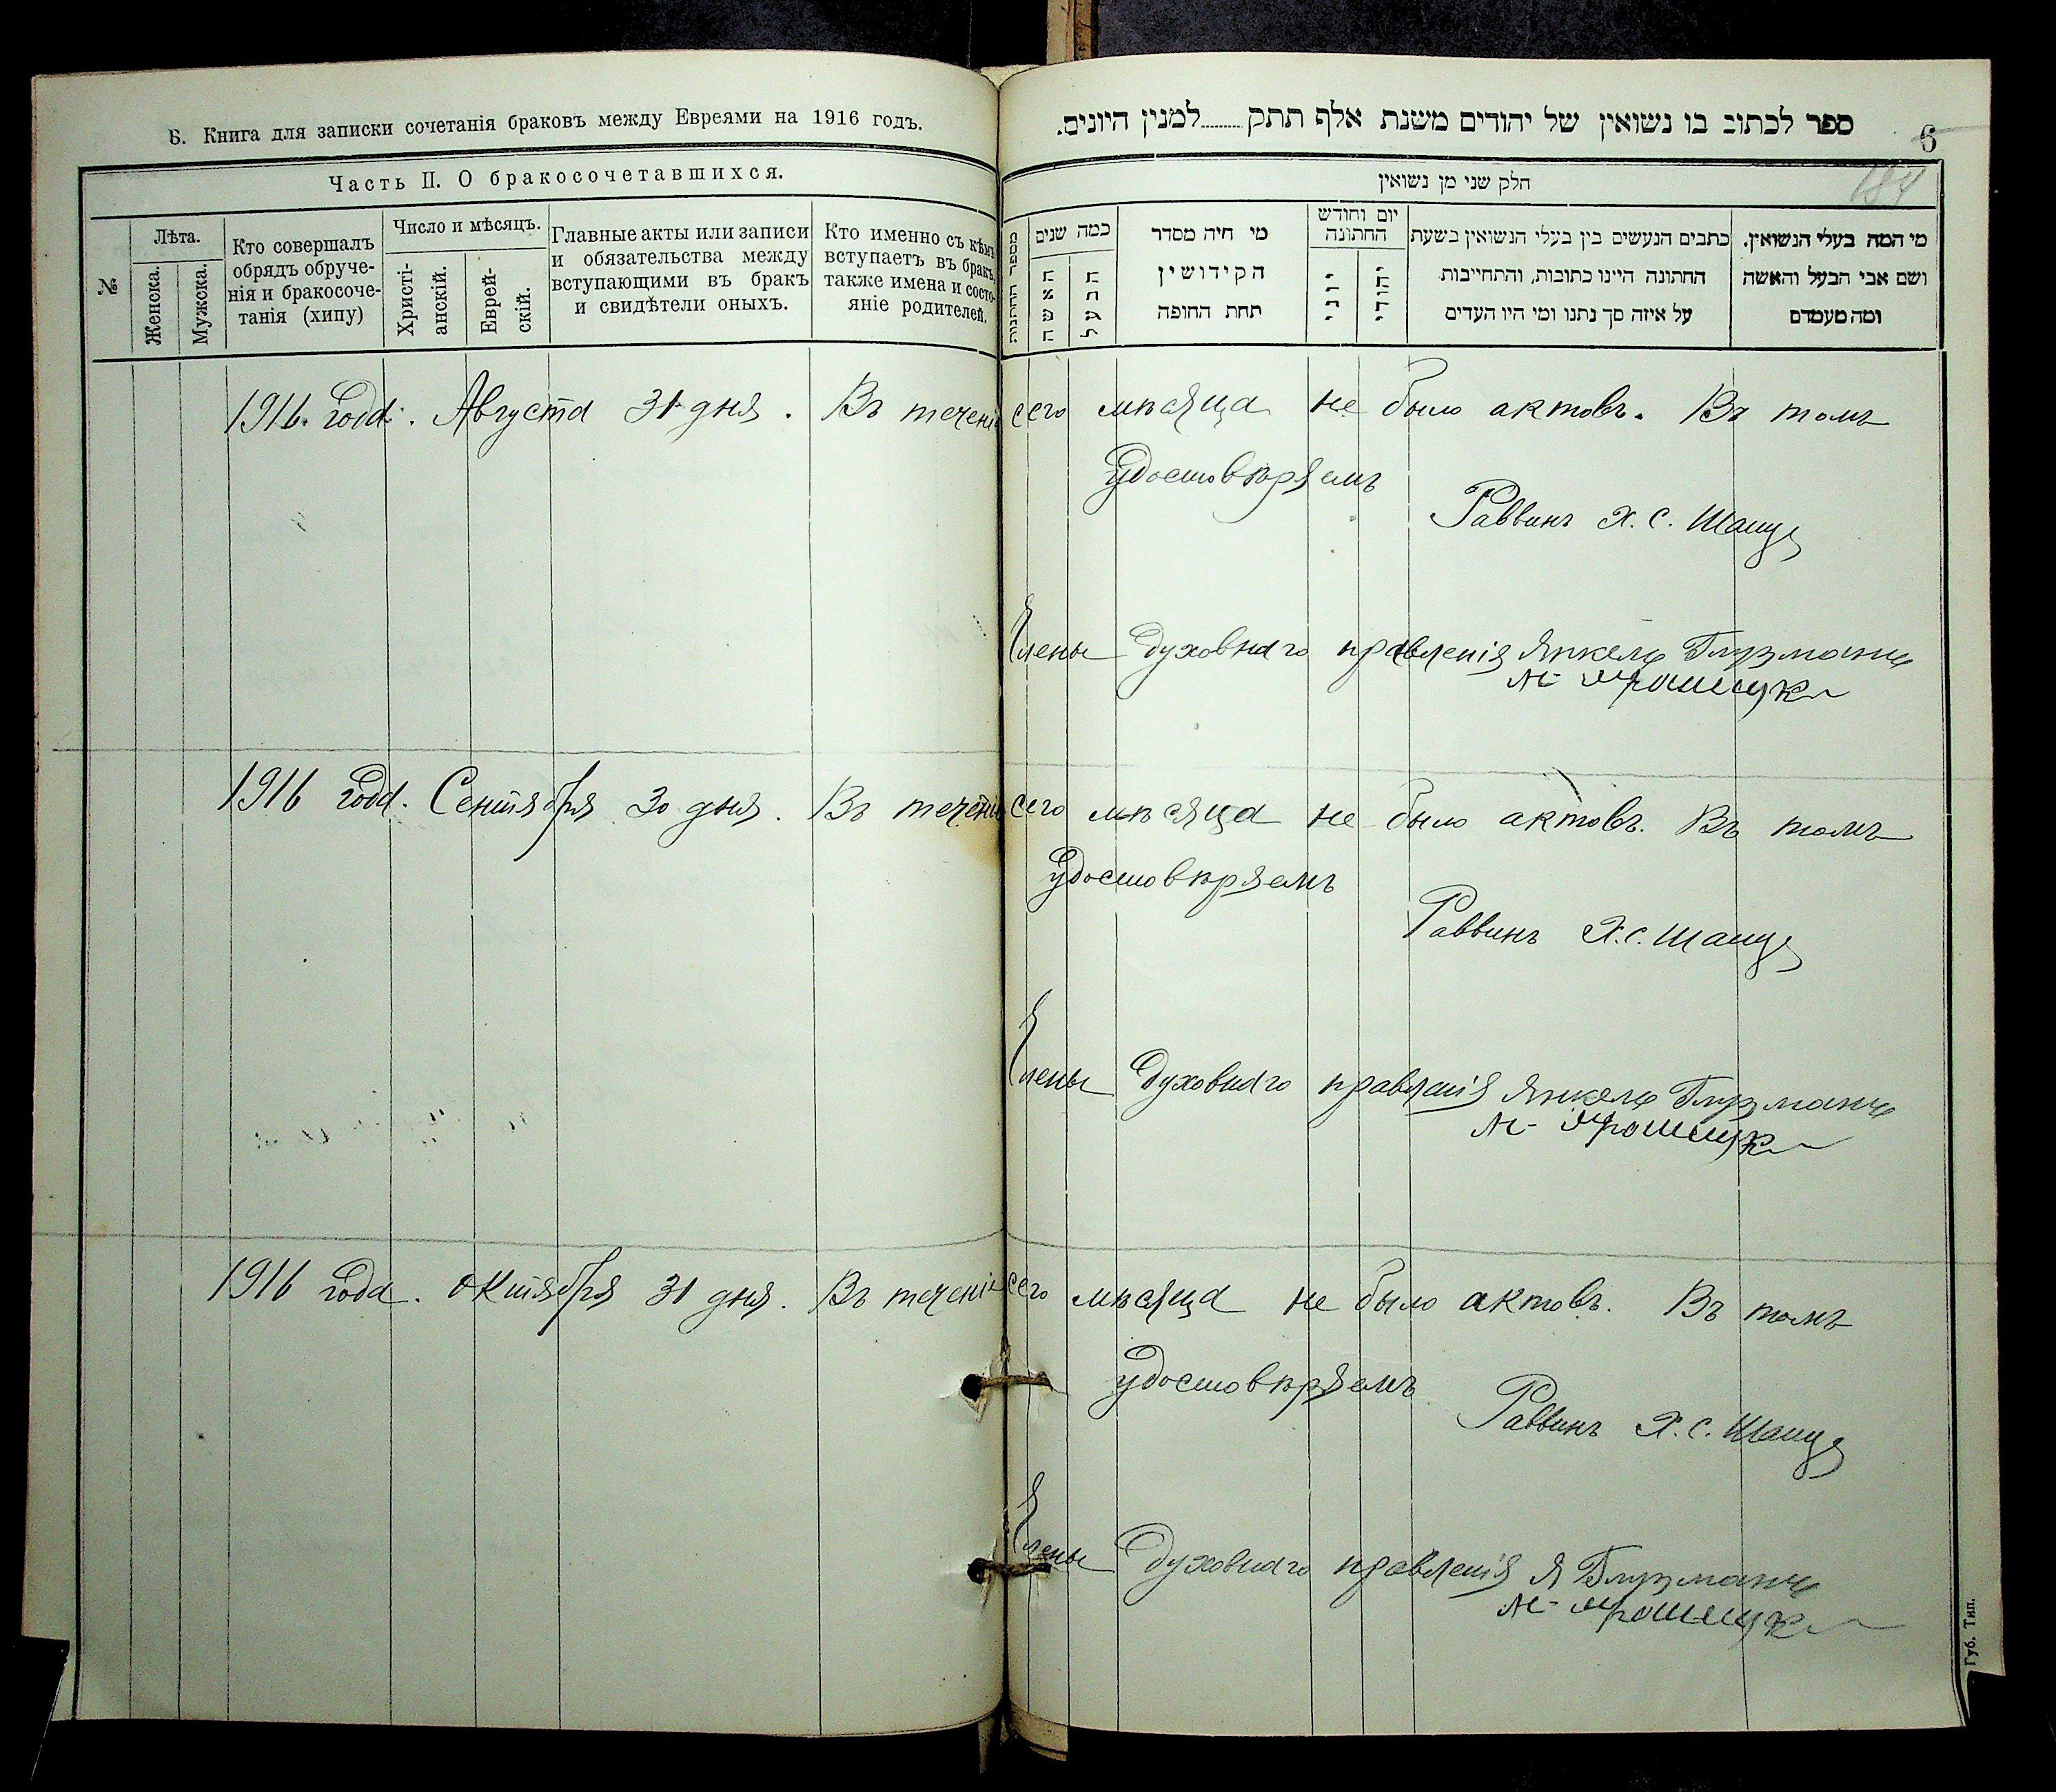 Б. Книга для записки сочетанія браковъ между Евреями на 1916 годъ.
Часть II. О бракосочетавшихся.
№
Лѣта.
Женска.
Мужска.
Кто совершалъ
обрядъ обруче-
нія и бракосоче-
танія (хипу)
Число и мѣсяцъ.
Христі-
анскій.
Еврей-
скій.
Главные акты или записи
и обязательства между
вступающими въ бракъ
и свидѣтели оныхъ.
Кто именно съ кѣмъ
вступаетъ въ бракъ,
также имена и состо-
яніе родителей.
ספר לכתוב בו נשואין של יהודים משנת אלף תתק........למנין היונים.
6
184
חלק שני מן נשואין
מספר החתונות
כמה שנים
האשה
הבעל
מי חיה מסדר
הקידושין
תחת החופה
יום וחודש
החתונה
יוני
יהודי
כתבים הנעשים בין בעלי הנשואין בשעת
החתונה היינו כתובות, והתחייבות
על איזה סך נתנו ומי היו העדים
מי המה בעלי הנשואין.
ושם אבי הבעל והאשה
ומה מעמדם
1916. года. Августа 31 дня. Въ теченіи сего мѣсяца не было актовъ. Въ томъ
удостовѣряемъ
Раввинъ Х. С. Шапиро
Члены духовнаго правленія Янкель Глузманъ
1916 года. Сентября 30 дня. Въ теченіи сего мѣсяца не было актовъ. Въ томъ
удостовѣряемъ
Раввинъ Х. С. Шапиро
Члены духовнаго правленія Янкель Глузманъ
1916 года. Октября 31 дня. Въ теченіи сего мѣсяца не было актовъ. Въ томъ
удостовѣряемъ
Раввинъ Х. С. Шапиро
Члены духовнаго правленія Я Глузманъ
Губ. Тип.